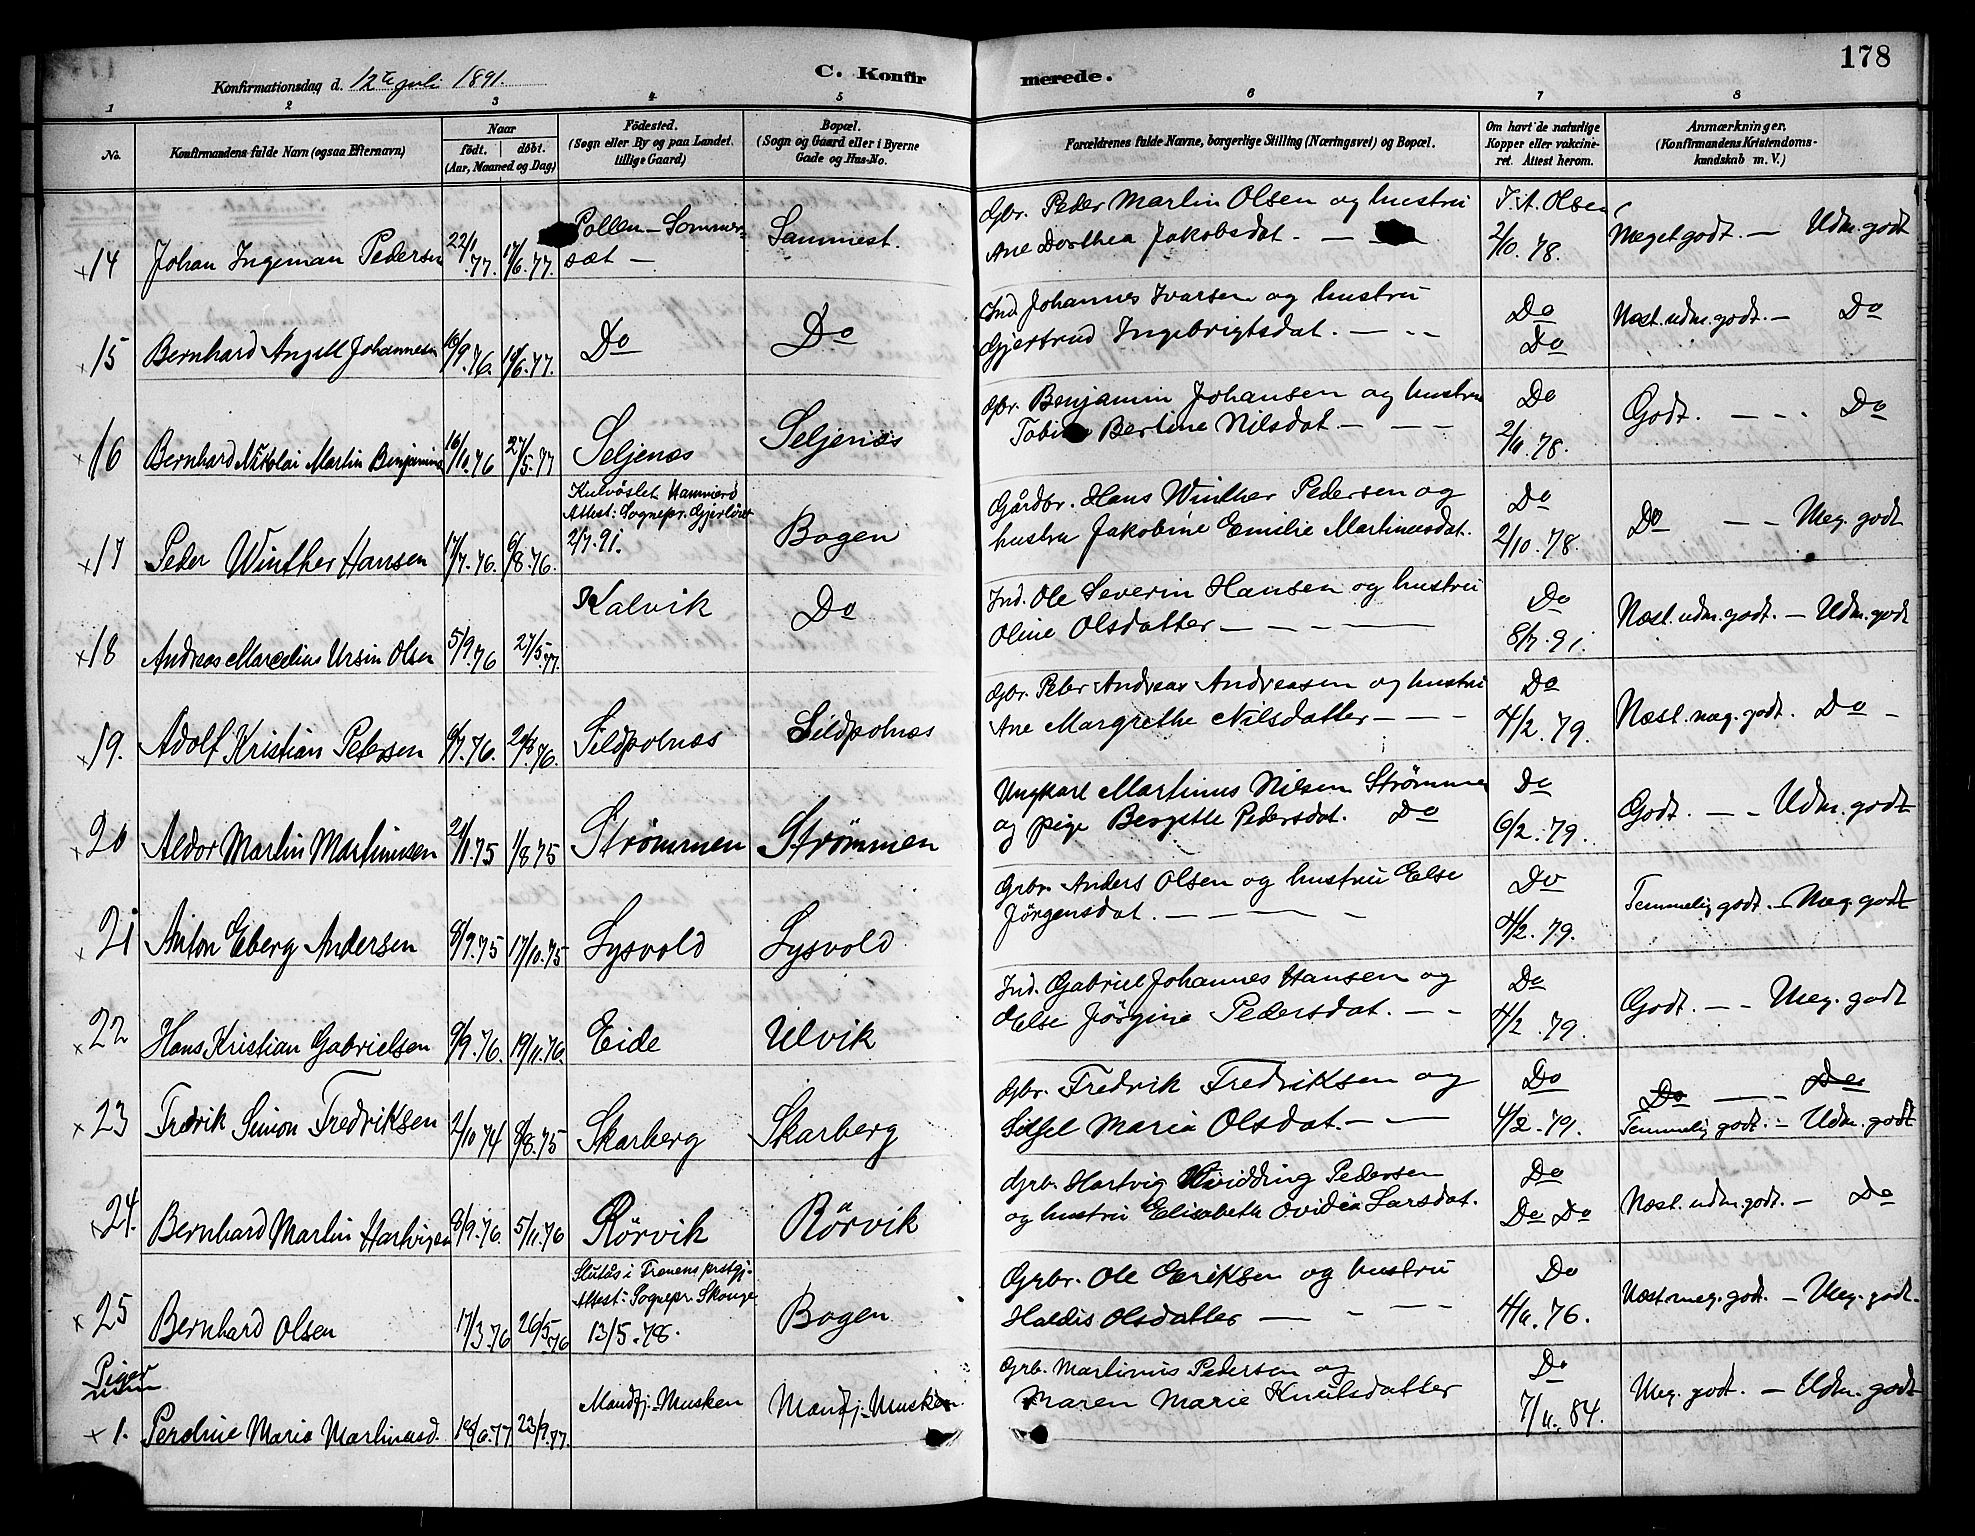 178
Konfirmationsdag d. 12te juli 1891.
C. Konfirmerede.
1 2 3 4 5 6 7 8
No.
Konfirmandens fulde Navn (ogsaa Efternavn)
Naar
födt. döbt.
(Aar, Maaned og Dag)
Födested.
(Sogn eller By og paa Landet tillige Gaard)
Bopæl.
(Sogn og Gaard eller i Byerne Gade og Hus-No.
Forældrenes fulde Navne, borgerlige Stilling (Næringsvei) og Bopæl.
Om havt de naturlige Kopper eller vakcineret. Attest herom.
Anmærkninger.
(Konfirmandens Kristendomskundskab m. V.)
x 14 Johan Ingeman Pedersen 22/1.77. 17/6.77. Pollen - Sommersæt - Sammest. Gbr. Peder Martin Olsen og hustru
Ane Dorthea Jakobsdat. — J.A. Olsen 2/10.78. Meget godt. — Udm. godt
x 15 Bernhard Angell Johannesen 16/9.76. 17/6.77. Do Do Ind. Johannes Ivarsen og hustru
Gjertrud Ingebrigtsdat. — Do Do Næst. udm. godt. — Do
x 16 Bernhard Nikolai Martin Benjamins 16/10.76 27/5.77 Seljenæs Seljenæs Gbr. Benjamin Johansen og hustru
Bertine Nilsdat — Do 2/11.78. Godt. — Do
x 17 Peder Winther Hansen 17/7.76. 6/8.76. Hammerö
Attest: Sognepr. Gjerlöw
2/7.91. Bogen Gårdbr. Hans Winther Pedersen og
hustru Jakobine Emilie Martinusdat. Do 2/10.78. Do — Meg. godt
x 18 Andreas Marcelius Ursin Olsen 5/9.76 27/5.77. Kalvik Do Ind. Ole Severin Hansen og hustru
Oline Olsdatter — Do 8/7.91. Næst. udm. godt. — Udm. godt
x 19. Adolf Kristian Petersen 9/7.76. 20/8.76. Sildpolnæs Sildpolnæs Gbr. Peter Andreas Andreasen og hustru
Ane Margrethe Nilsdatter — Do 4/2.79. Næst. meg. godt. Do —
x 20 Aldor Martin Martinusen 21/1.75 1/8.75 Strømmen Strømmen Ungkarl Martinus Nilsen Strømmen
og pige Bergitte Pedersdat. Do Do 6/2.79. Godt. — Udm. godt
x 21 Anton Eberg Andersen 8/9.75 17/10.75 Lysvold Lysvold Grbr. Anders Olsen og hustru Else
Jörgensdat. — Do 4/2.79. Temmelig godt. — Meg. godt
x 22 Hans Kristian Gabrielsen 9/9.76. 19/11.76. Eide Ulvik Ind. Gabriel Johannes Hansen og
Else Jørgine Pedersdat. — Do 4/2.79. Godt. — Meg. godt
x 23 Fredrik Simon Fredriksen 2/10.74 8/8.75 Skarberg Skarberg Gbr. Fredrik Fredriksen og
Sissel Maria Olsdat. — Do 4/2.79. Do — Do
Temmelig godt. — Udm. godt
x 24. Bernhard Martin Hartvigsen 8/9.76. 5/11.76 Rörvik Rörvik Grb. Hartvig Kvidding Pedersen
og hustru Elisabeth Ovidia Larsdat. Do Do Do Næst. udm. godt. — Do
x 25 Bernhard Olsen 17/3.76 26/5.76 Slutås i Tranens prstgj.
Attest: Sognepr. Skouge
13/5.78. Bogen Grbr. Ole Eriksen og hustru
Haldis Olsdatter — Do 4/6.76. Næst. meg. godt. — Meg. godt.
Piger
x 1. Perdine Maria Martinusd. 18/6.77. 23/9.77. Mandfj. - Musken Mandfj. - Musken Grb. Martinus Pedersen og
Maren Marie Knutsdatter Do 7/11.84. Meg. godt. — Udm. godt